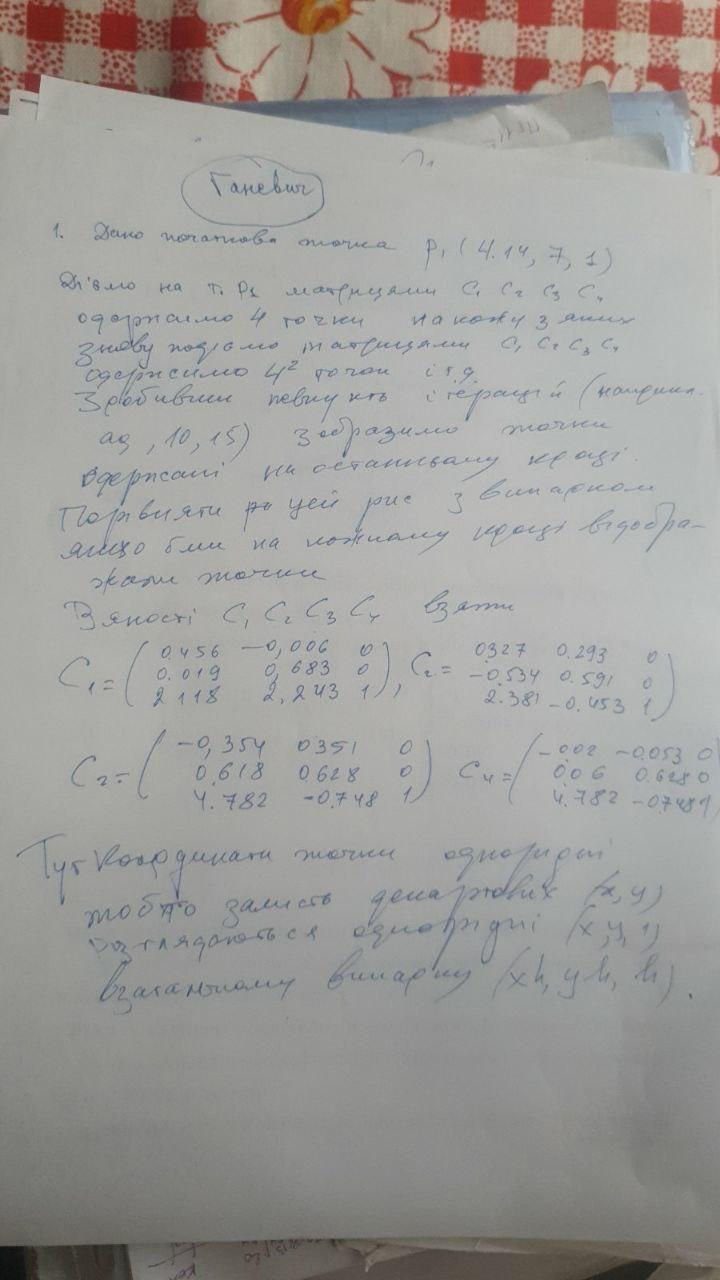 Ганевич
1. Дано початкова точка P₁ (4.14, 7, 1)
Діємо на т. P₁ матрицями C₁ C₂ C₃ C₄
одержимо 4 точки на кожу з яких
знову подіємо матрицями C₁ C₂ C₃ C₄
одержимо 4² точок і т.д.
Зробивши певну к-ть ітерацій (наприкл.
10, 15) зобразимо точки
одержані на останньому кроці.
Порівняти цей рис з випадком
якщо б ми на кожному кроці відобра-
жали точки
В якості C₁ C₂ C₃ C₄ взяти
C₁ = ( 0.456 -0,006 0 C₂ = 0.327 0.293 0
0.019 0,683 0 -0.534 0.591 0
2 118 2,243 1 ), 2.381 -0.453 1 )
C₂ = ( -0,354 0351 0 C₄ = ( -002 -0.053 0
0.618 0628 0 006 0.628 0
4.782 -0.748 1 ) 4.782 -0748 1
Тут координати точки однорідні
тобто замість декартових (x, y)
розглядаються однорідні (x, y, 1)
в загальному випадку (xh, yh, h).